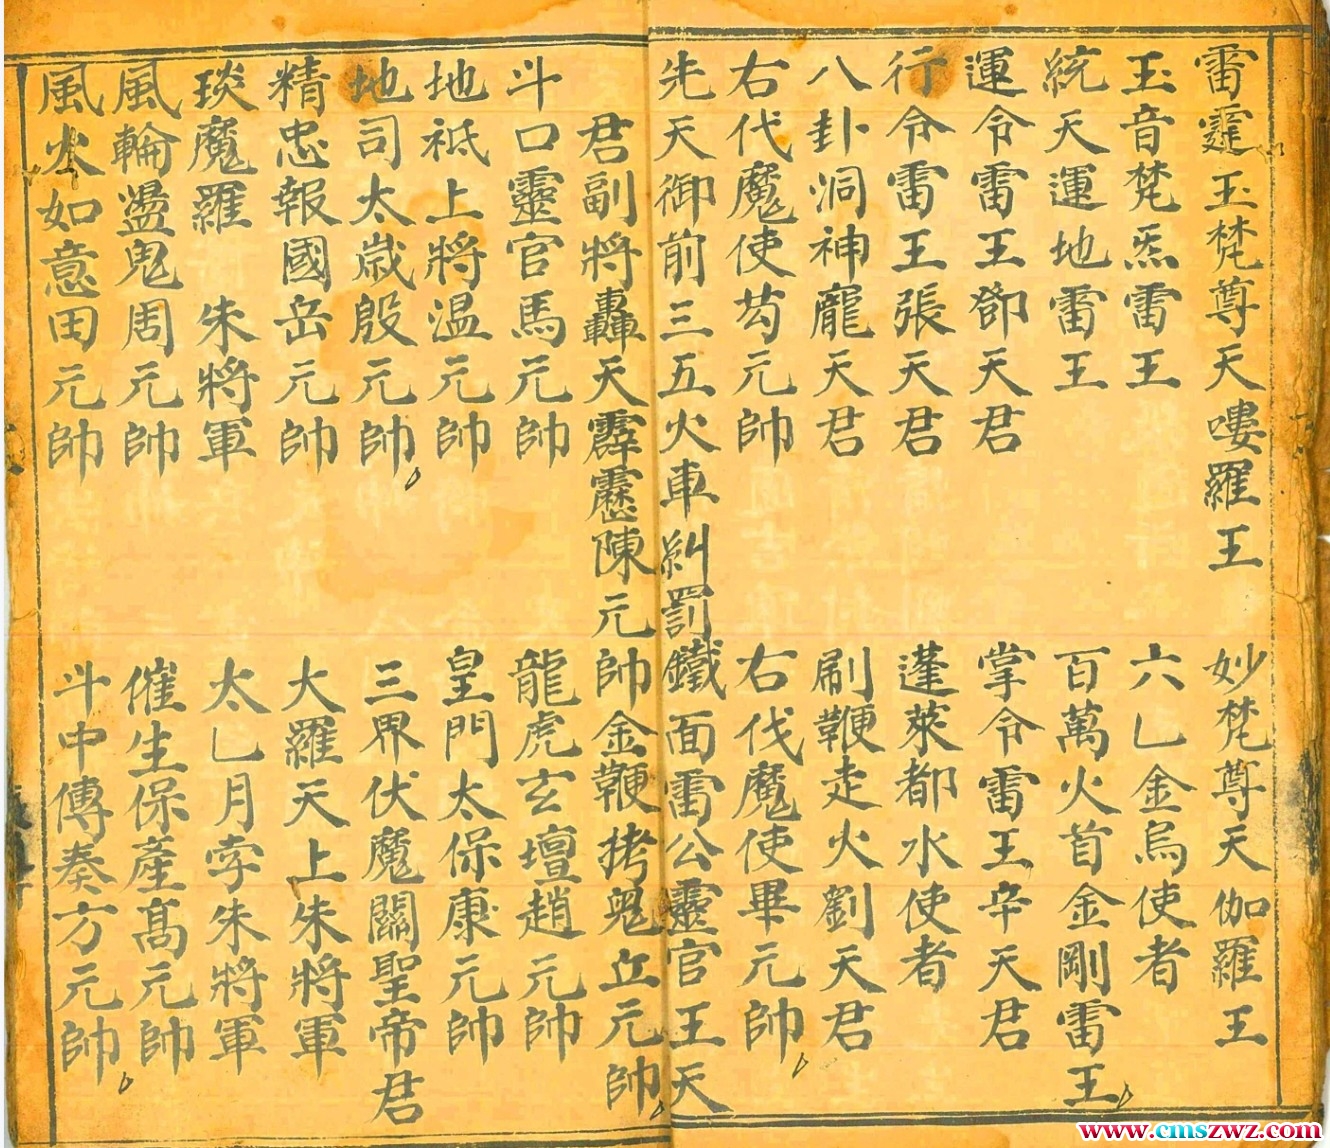 雷霆玉梵尊天嘍羅王 妙梵尊天伽羅王
玉音梵炁雷王 六乙金烏使者
統天運地雷王 百萬火首金剛雷王
運令雷王鄧天君 掌令雷王辛天君
行令雷王張天君 蓬萊都水使者
八卦洞神龐天君 刷鞭走火劉天君
右代魔使茍元帥 右伐魔使畢元帥
先天御前三五火車糾罰鐵面雷公靈官王天
君副將轟天霹靂陳元帥金鞭拷鬼丘元帥
斗口靈官馬元帥 龍虎玄壇趙元帥
地祇上將温元帥 皇門太保康元帥
地司太歲殷元帥 三界伏魔關聖帝君
精忠報國岳元帥 大羅天上朱將軍
琰魔羅 朱將軍 太乙月孛朱將軍
風輪盪鬼周元帥 催生保產高元帥
風火如意田元帥 斗中傳奏方元帥
www.cmszwz.com